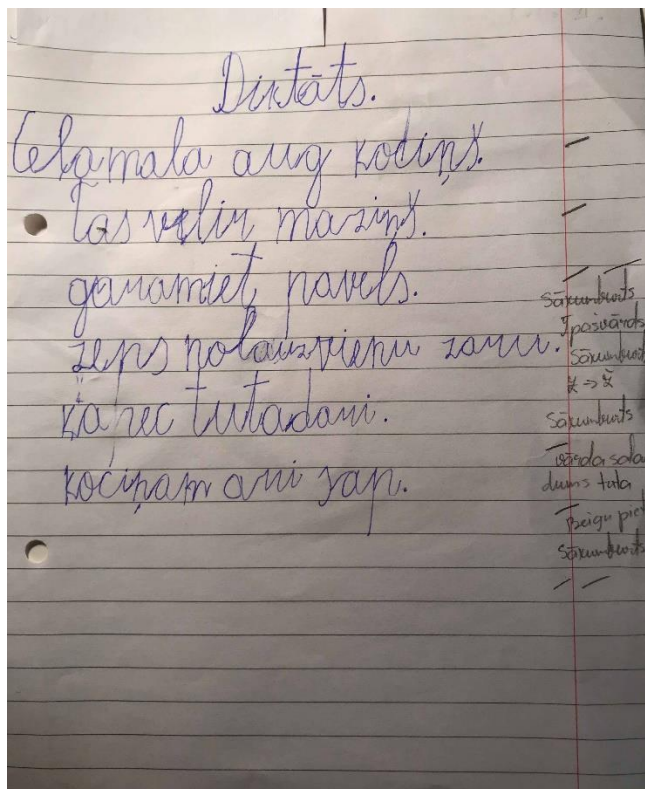 Diktāts.
Ceļamala aug kociņš.
Tas vēlir maziņš.
garamiet pavels.
zeps nolauzvienu zaru.
kāpēc tutadari.
kociņam ari sāp.
Sākumburts
Īpašvārds
Sākumburts
z → ž
Sākumburts
vārda sada
dums tuta
Beigu piet
Sākumburts